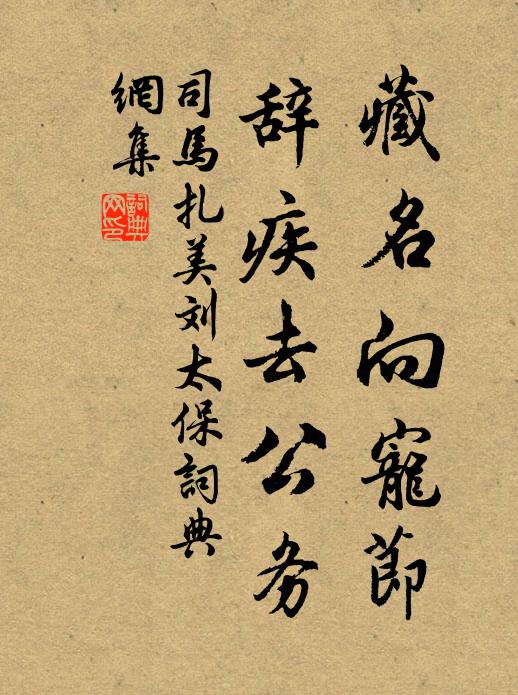 藏名向寵節
辞疾去公务
司馬扎美刘太保詞典
網集
詞典
网印